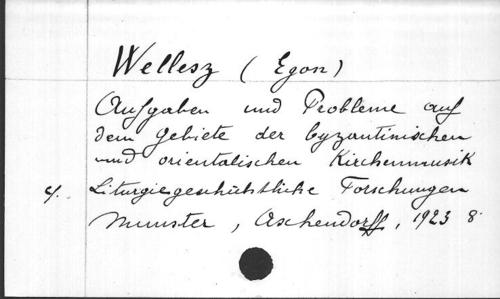 Wellesz (Egon)
Aufgaben und Probleme auf
dem Gebiete der byzantinischen
und orientalischen Kirchenmusik
cf. Liturgiegeschichtliche Forschungen
Munster, Aschendorff, 1923 8°